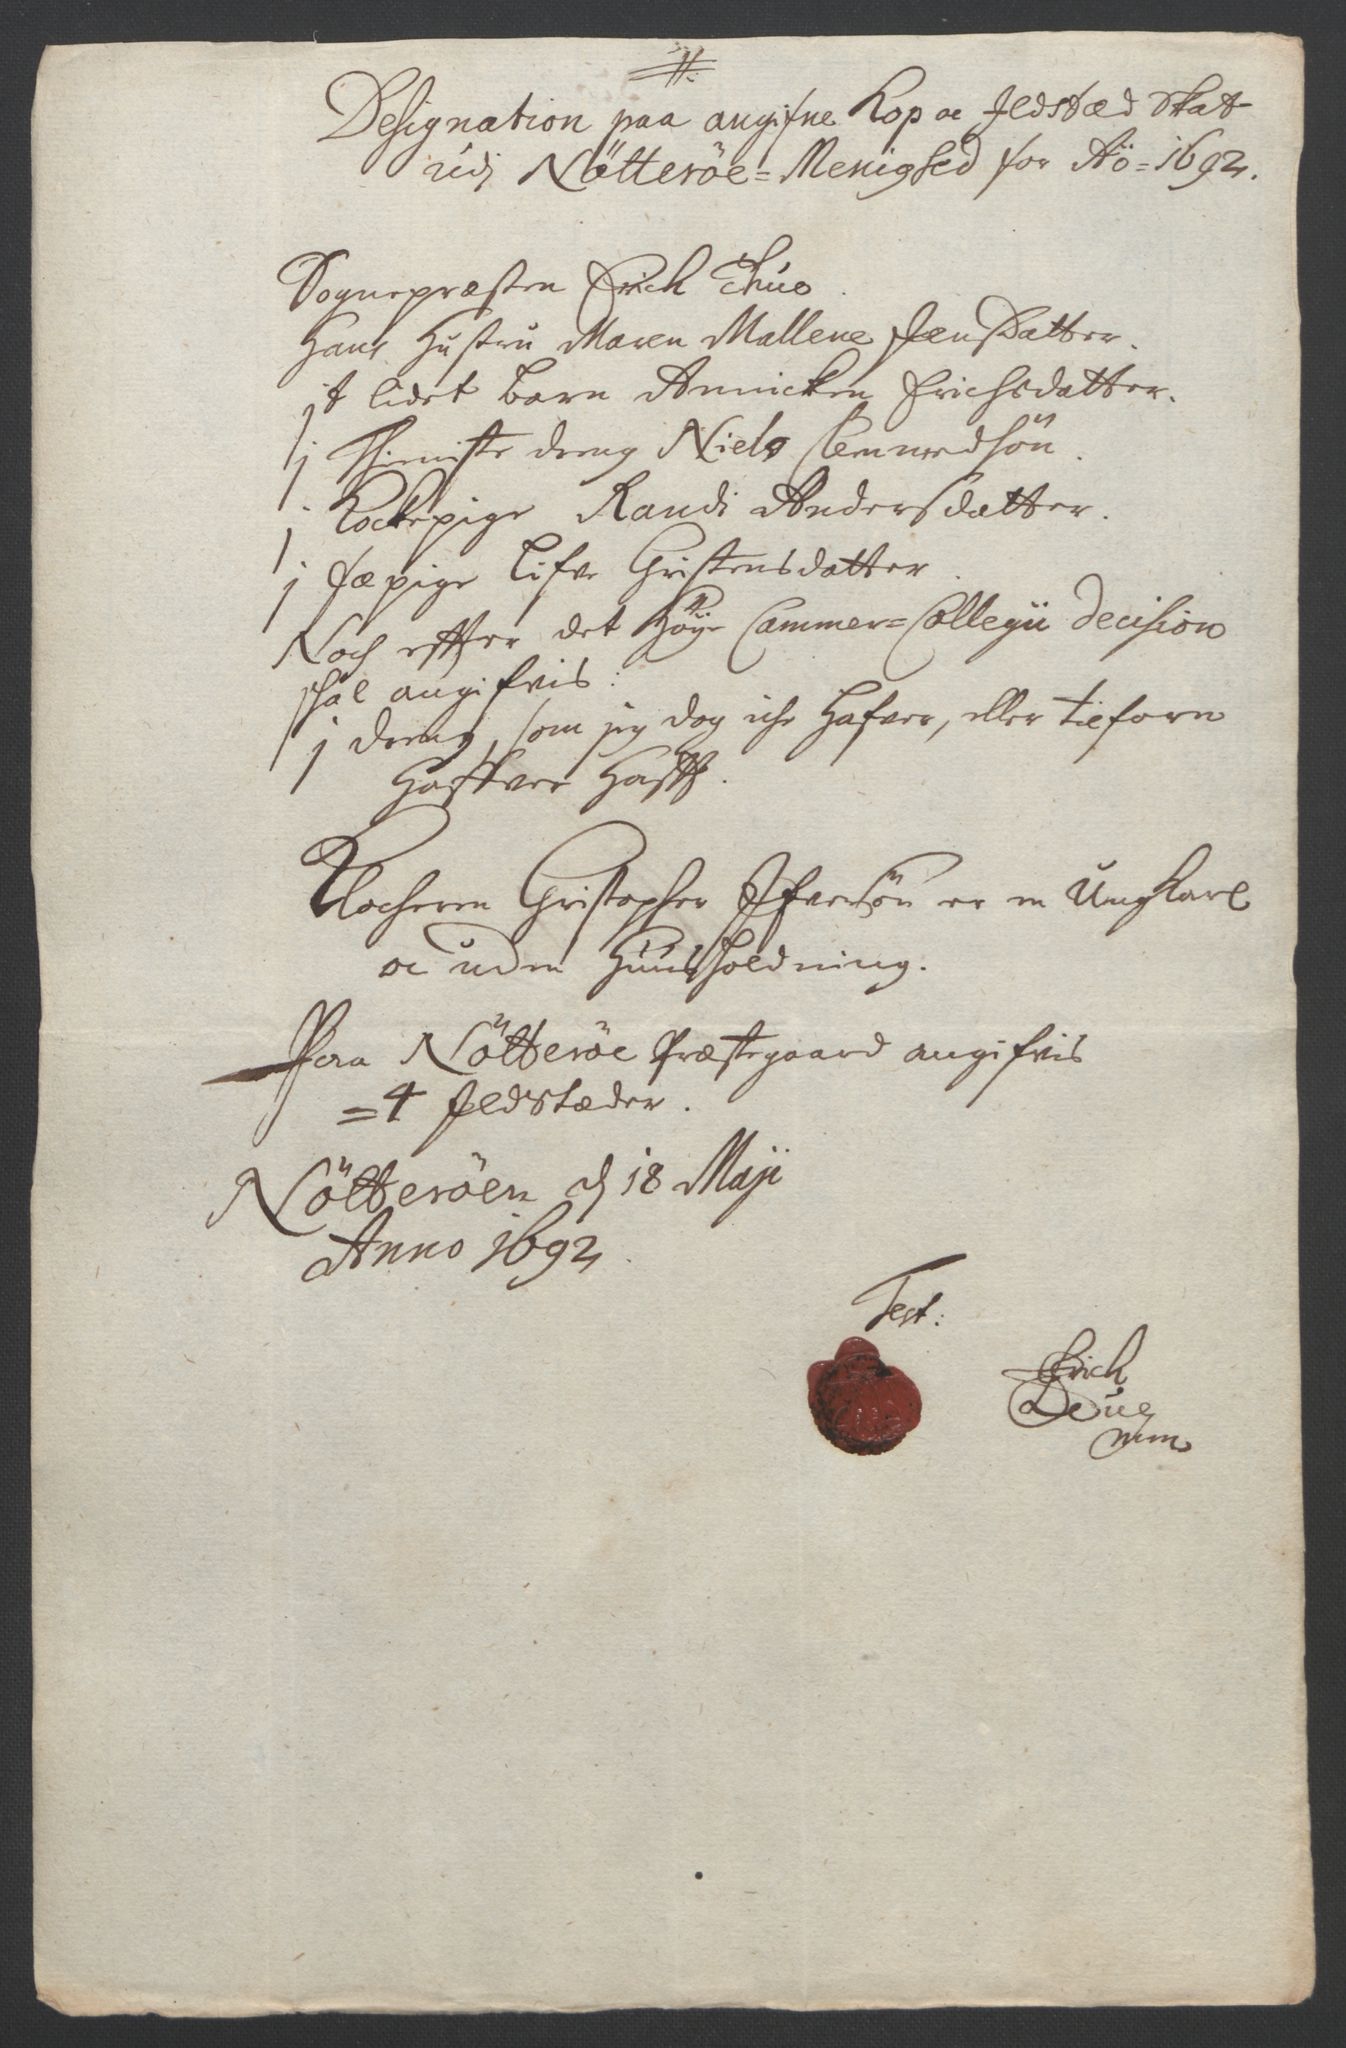 Designation paa angifne Kop oc Ildstæd Skat
udj Nötteröe=Menighed for Aö=1692.
Sognepræsten Erich Thue
Hans Hustru Maren Mallene Jensdatter.
jt lidet barn Annicken Erichsdatter.
j Thieniste dreng Niels
j Kockepige Randi Andersdatter.
j fæpige Lifve Christensdatter.
Noch effter det Höye Cammer=Collegii decision
schal angifvis:
j dreng, som jeg dog iche hafver, eller tilforn
hafver hafft.
Klocheren Christopher Ifversön er en Ung Karl
oc uden Huusholdning.
Paa Nötteröe Præstegaard angifvis
=4 Ildstæder.
Nötteröen d 18 Maji
Anno 1692.
Test:
Erich
mm